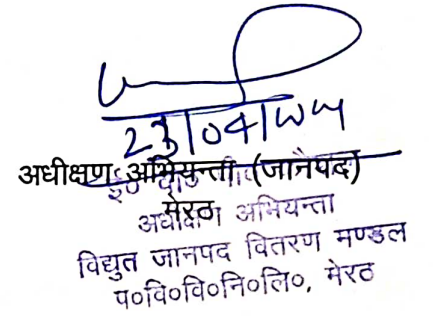 23/04/
अधीक्षण अभियन्ता (जानपद)
मेरठ
अधीक्षण अभियन्ता
विद्युत जानपद वितरण मण्डल
प०वि०वि०नि०लि०, मेरठ